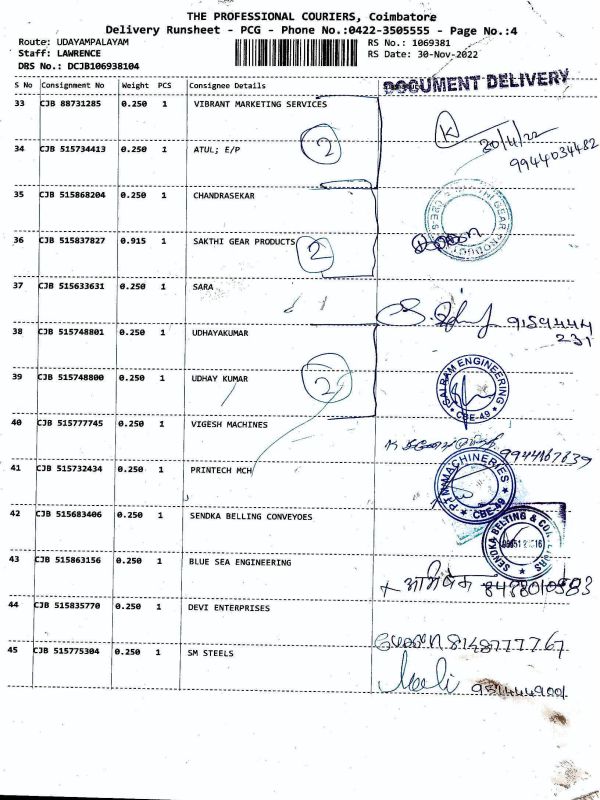 THE PROFESSIONAL COURIERS, Coimbatore
Delivery Runsheet - PCG - Phone No.:0422-3505555 - Page No.:4
Route: UDAYAMPALAYAM
RS No.: 1069381
Staff: LAWRENCE
RS Date: 30-Nov-2022
DRS No.: DCJB106938104
S No Consignment No Weight PCS Consignee Details
DOCUMENT DELIVERY
33 CJB 88731285 0.250 1 VIBRANT MARKETING SERVICES
K 30/4/22
9944034482
34 CJB 515734413 0.250 1 ATUL; E/P
2
35 CJB 515868204 0.250 1 CHANDRASEKAR
36 CJB 515837827 0.915 1 SAKTHI GEAR PRODUCTS
2
37 CJB 515633631 0.250 1 SARA
9159444
231
38 CJB 515748801 0.250 1 UDHAYAKUMAR
39 CJB 515748800 0.250 1 UDHAY KUMAR
2
SAI RAM ENGINEERING
CBE-49
40 CJB 515777745 0.250 1 VIGESH MACHINES
9944167839
41 CJB 515732434 0.250 1 PRINTECH MCH
MACHINERIES
CBE-49
42 CJB 515683406 0.250 1 SENDKA BELLING CONVEYOES
SENDKA BELTING &
43 CJB 515863156 0.250 1 BLUE SEA ENGINEERING
8488010583
44 CJB 515835770 0.250 1 DEVI ENTERPRISES
8148777767
45 CJB 515775304 0.250 1 SM STEELS